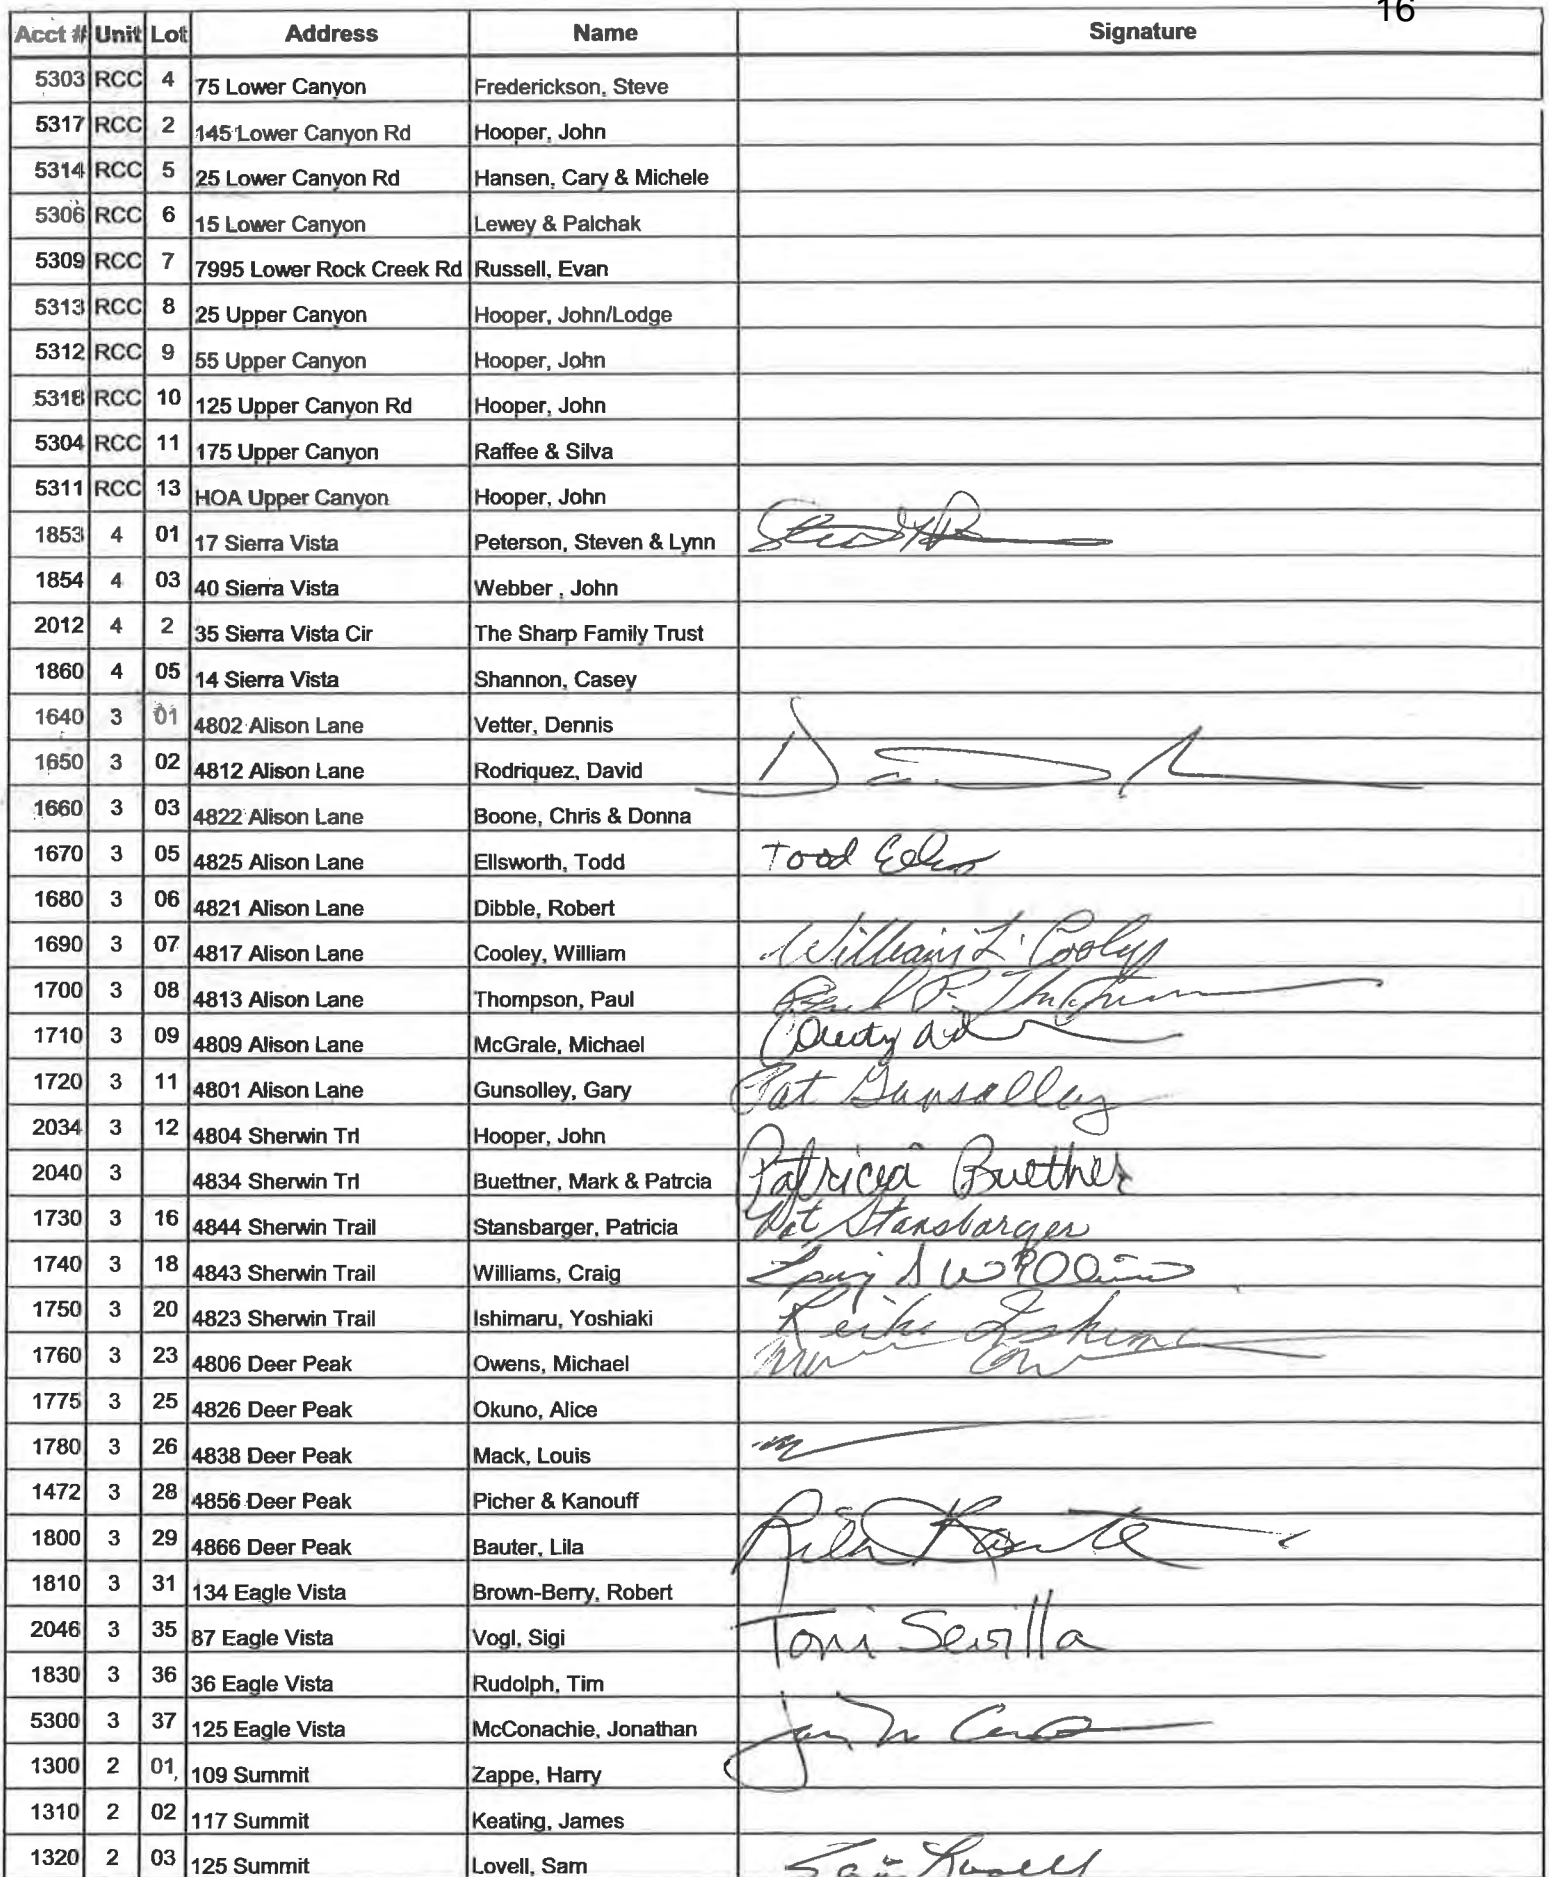 16
Acct # Unit Lot Address Name Signature
5303 RCC 4 75 Lower Canyon Frederickson, Steve
5317 RCC 2 145 Lower Canyon Rd Hooper, John
5314 RCC 5 25 Lower Canyon Rd Hansen, Cary & Michele
5306 RCC 6 15 Lower Canyon Lewey & Palchak
5309 RCC 7 7995 Lower Rock Creek Rd Russell, Evan
5313 RCC 8 25 Upper Canyon Hooper, John/Lodge
5312 RCC 9 55 Upper Canyon Hooper, John
5318 RCC 10 125 Upper Canyon Rd Hooper, John
5304 RCC 11 175 Upper Canyon Raffee & Silva
5311 RCC 13 HOA Upper Canyon Hooper, John
1853 4 01 17 Sierra Vista Peterson, Steven & Lynn
1854 4 03 40 Sierra Vista Webber , John
2012 4 2 35 Sierra Vista Cir The Sharp Family Trust
1860 4 05 14 Sierra Vista Shannon, Casey
1640 3 01 4802 Alison Lane Vetter, Dennis
1650 3 02 4812 Alison Lane Rodriquez, David
1660 3 03 4822 Alison Lane Boone, Chris & Donna
1670 3 05 4825 Alison Lane Ellsworth, Todd Todd
1680 3 06 4821 Alison Lane Dibble, Robert
1690 3 07 4817 Alison Lane Cooley, William William L. Cooley
1700 3 08 4813 Alison Lane Thompson, Paul Paul P. Thompson
1710 3 09 4809 Alison Lane McGrale, Michael
1720 3 11 4801 Alison Lane Gunsolley, Gary Pat Gunsolley
2034 3 12 4804 Sherwin Trl Hooper, John
2040 3 4834 Sherwin Trl Buettner, Mark & Patrcia Patricia Buettner
1730 3 16 4844 Sherwin Trail Stansbarger, Patricia Pat Stansbarger
1740 3 18 4843 Sherwin Trail Williams, Craig Craig S Williams
1750 3 20 4823 Sherwin Trail Ishimaru, Yoshiaki
1760 3 23 4806 Deer Peak Owens, Michael
1775 3 25 4826 Deer Peak Okuno, Alice
1780 3 26 4838 Deer Peak Mack, Louis
1472 3 28 4856 Deer Peak Picher & Kanouff
1800 3 29 4866 Deer Peak Bauter, Lila
1810 3 31 134 Eagle Vista Brown-Berry, Robert
2046 3 35 87 Eagle Vista Vogl, Sigi Toni Sevilla
1830 3 36 36 Eagle Vista Rudolph, Tim
5300 3 37 125 Eagle Vista McConachie, Jonathan
1300 2 01 109 Summit Zappe, Harry
1310 2 02 117 Summit Keating, James
1320 2 03 125 Summit Lovell, Sam Sam Lovell